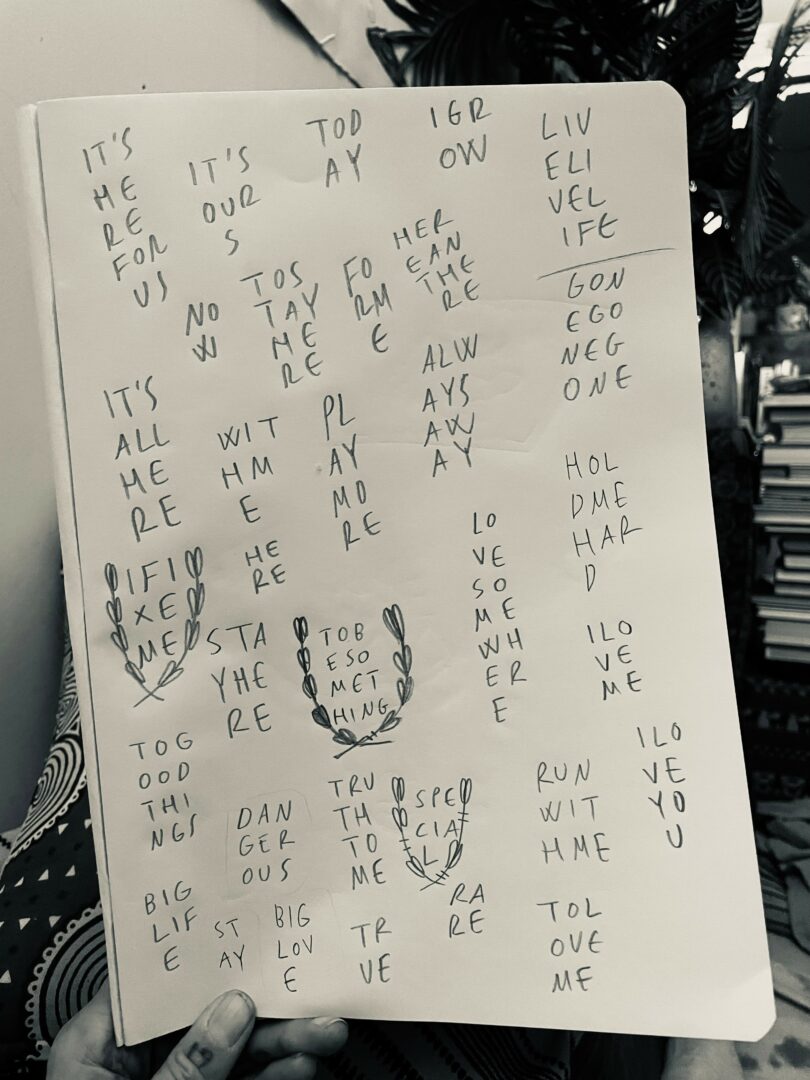 IT'S
HE
RE
FOR
US
IT'S
OUR
S
TOD
AY
IGR
OW
LIV
ELI
VEL
IFE
NO
W
TOS
TAY
HE
RE
FO
RM
E
HER
EAN
THE
RE
GON
EGO
NEG
ONE
IT'S
ALL
HE
RE
WIT
HM
E
PL
AY
MO
RE
ALW
AYS
AW
AY
HOL
DME
HAR
D
IFI
XE
ME
HE
RE
STA
YHE
RE
TOB
ESO
MET
HING
LO
VE
SO
ME
WH
ER
E
ILO
VE
ME
TOG
OOD
THI
NGS
DAN
GER
OUS
TRU
TH
TO
ME
SPE
CIA
L
RUN
WIT
HME
ILO
VE
YO
U
BIG
LIF
E
ST
AY
BIG
LOV
E
TR
VE
RA
RE
TOL
OVE
ME